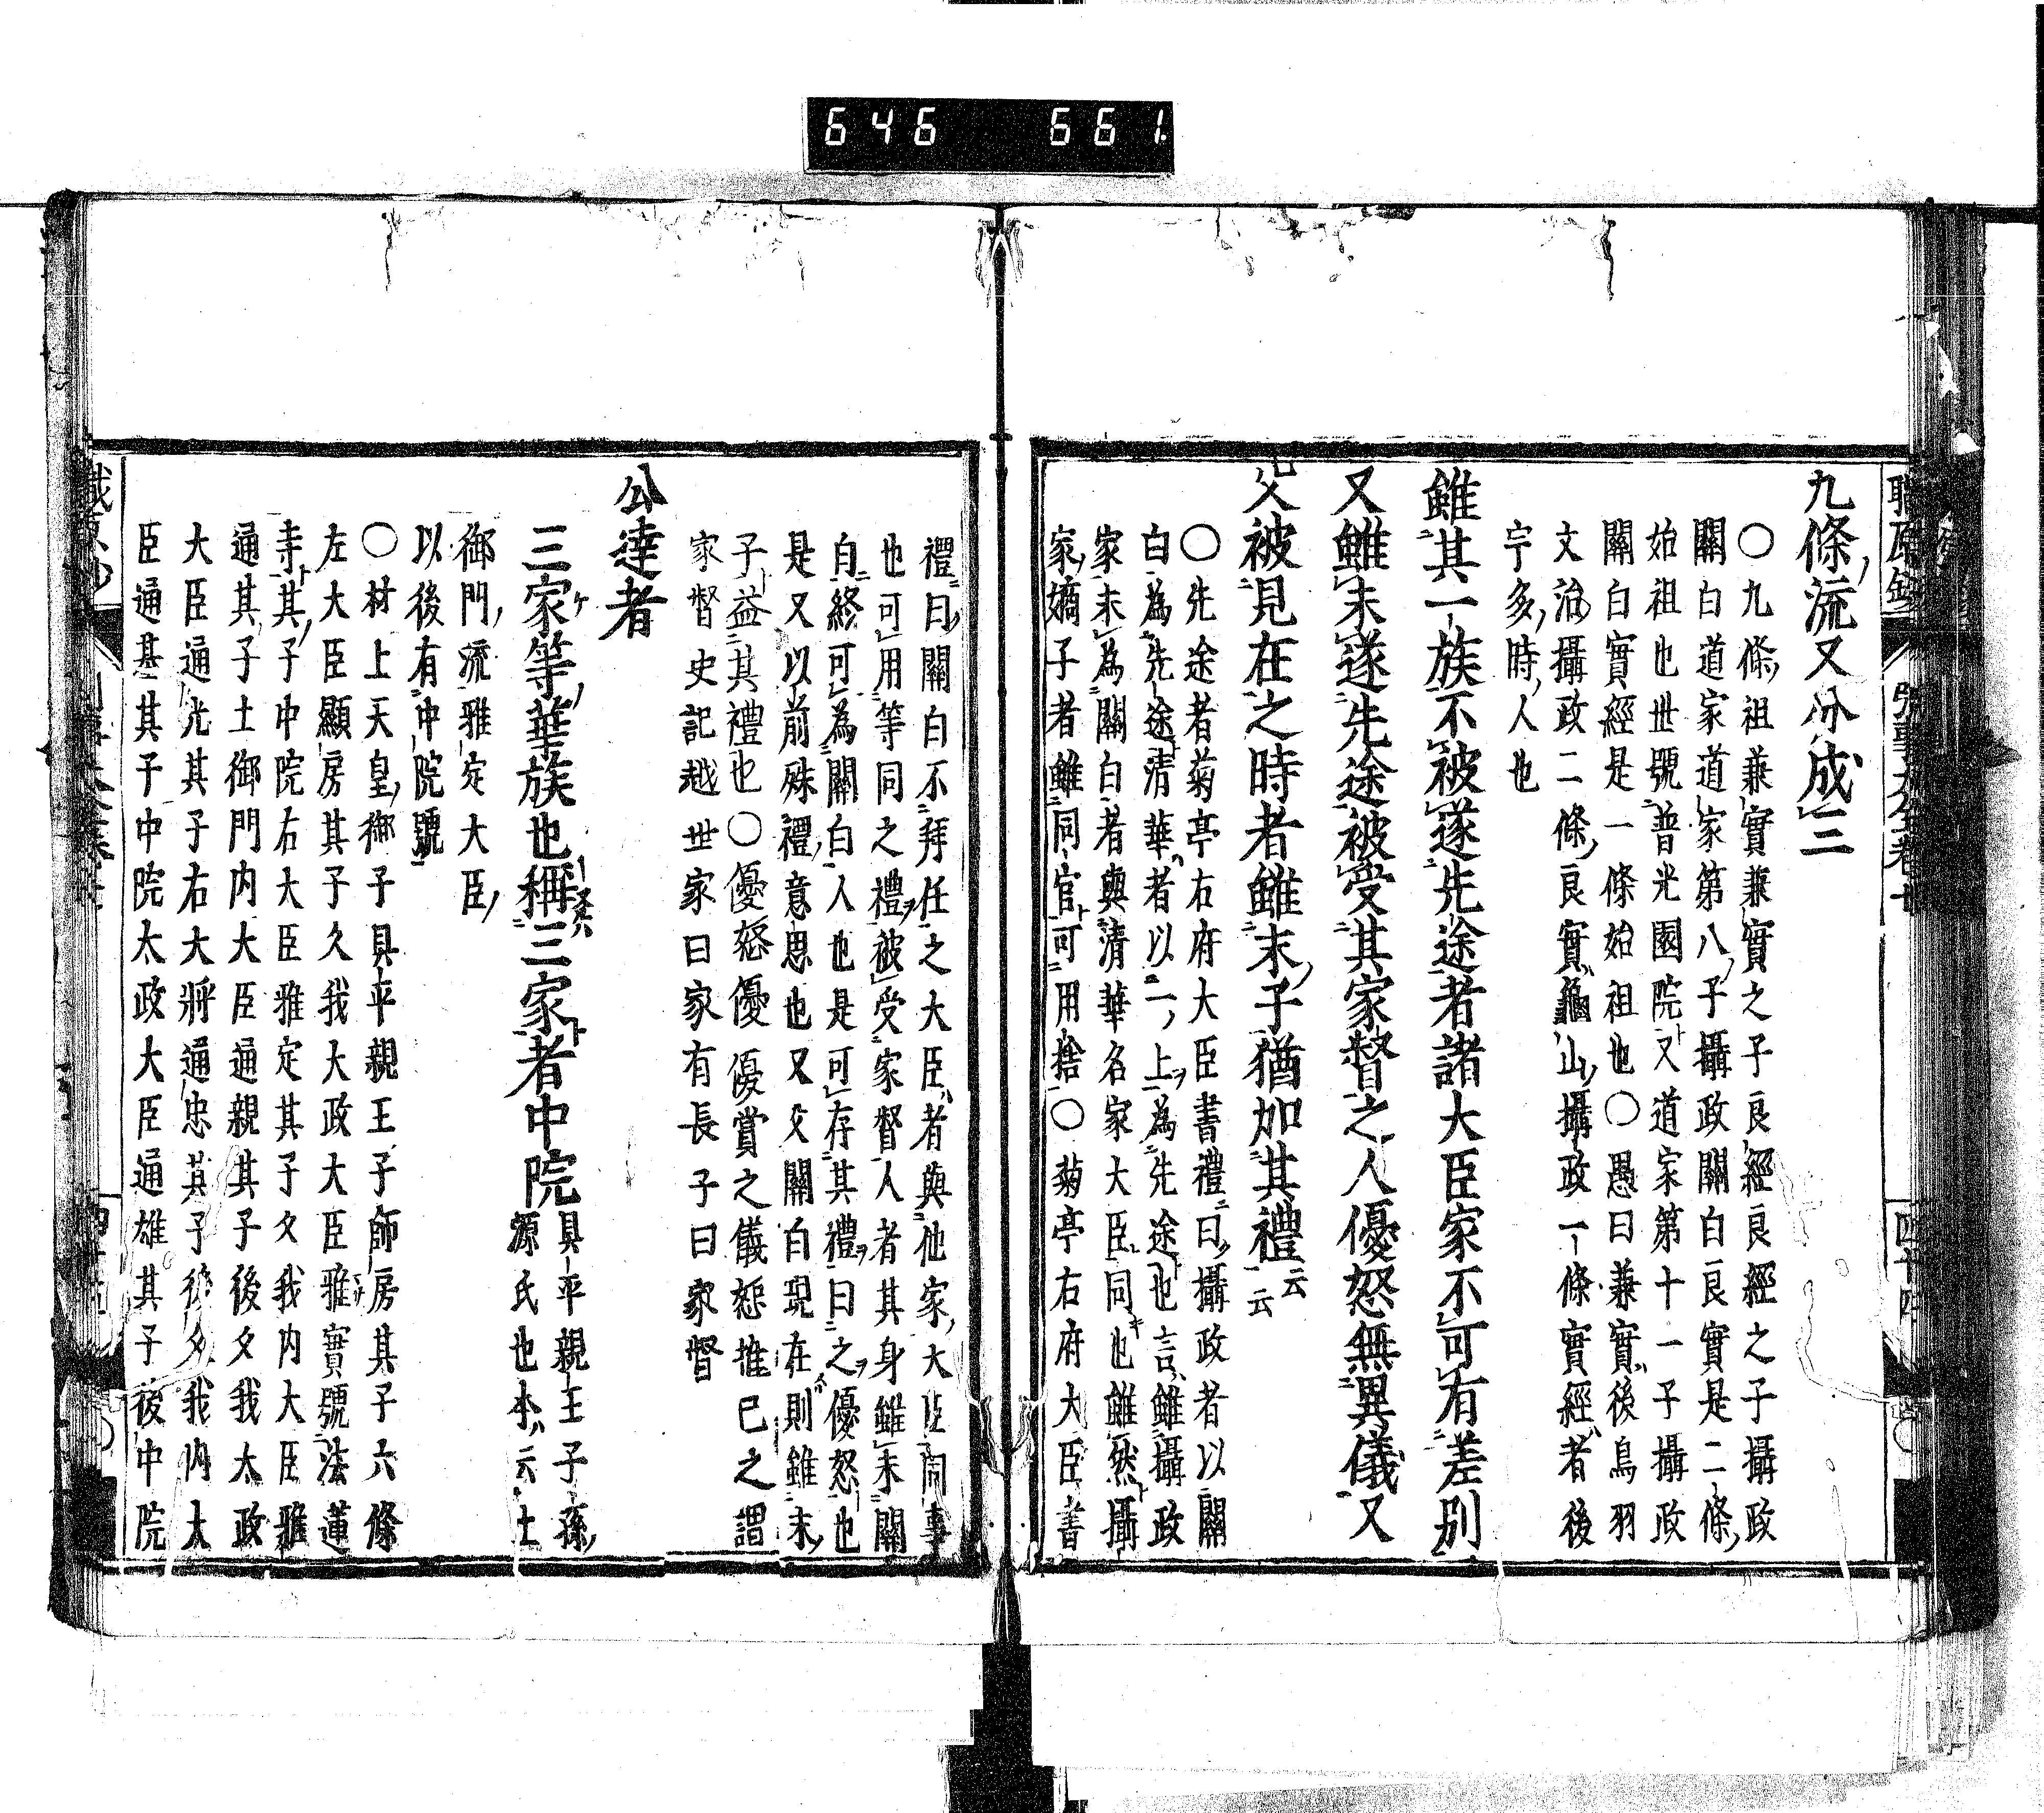 646 661
九條流又分成三
〇九條祖兼實兼實之子良經良經之子攝政
關白道家道家第八子攝政關白良實是二條
始祖也世號普光園院又道家第十一子攝政
關白實經是一條始祖也〇愚曰兼實後鳥羽
文治攝政二條良實龜山攝政一條實經者後
宇多時人也
雖其一族不被遂先途者諸大臣家不可有差別
又雖末遂先途被受其家督之人優恕無異儀又
父被見在之時者雖末子猶加其禮云云
〇先途者菊亭右府大臣書禮曰攝政者以關
白為先途清華者以一上為先途也言雖攝政
家末為關白者與清華名家大臣同也雖然攝
家嫡子者雖同官可用捨〇菊亭右府大臣書
禮曰關白不拜任之大臣者與他家大臣同事
也可用等同之禮被受家督人者其身雖未關
白終可為關白人也是可存其禮曰之優恕也
是又以前殊禮意思也又父關白現在則雖末
子益其禮也〇優恕優優賞之儀恕推己之謂
家督史記越世家曰家有長子曰家督
公達者
三家等華族也稱三家者中院具平親王子孫
源氏也李云土
御門流雅定大臣
以後有中院號
〇村上天皇御子具平親王子師房其子六條
左大臣顯房其子久我大政大臣雅實號法蓮
寺其子中院右大臣雅定其子久我內大臣雅
通其子土御門內大臣通親其子後久我太政
大臣通光其子右大將通忠其子後久我內大
臣通基其子中院太政大臣通雄其子後中院